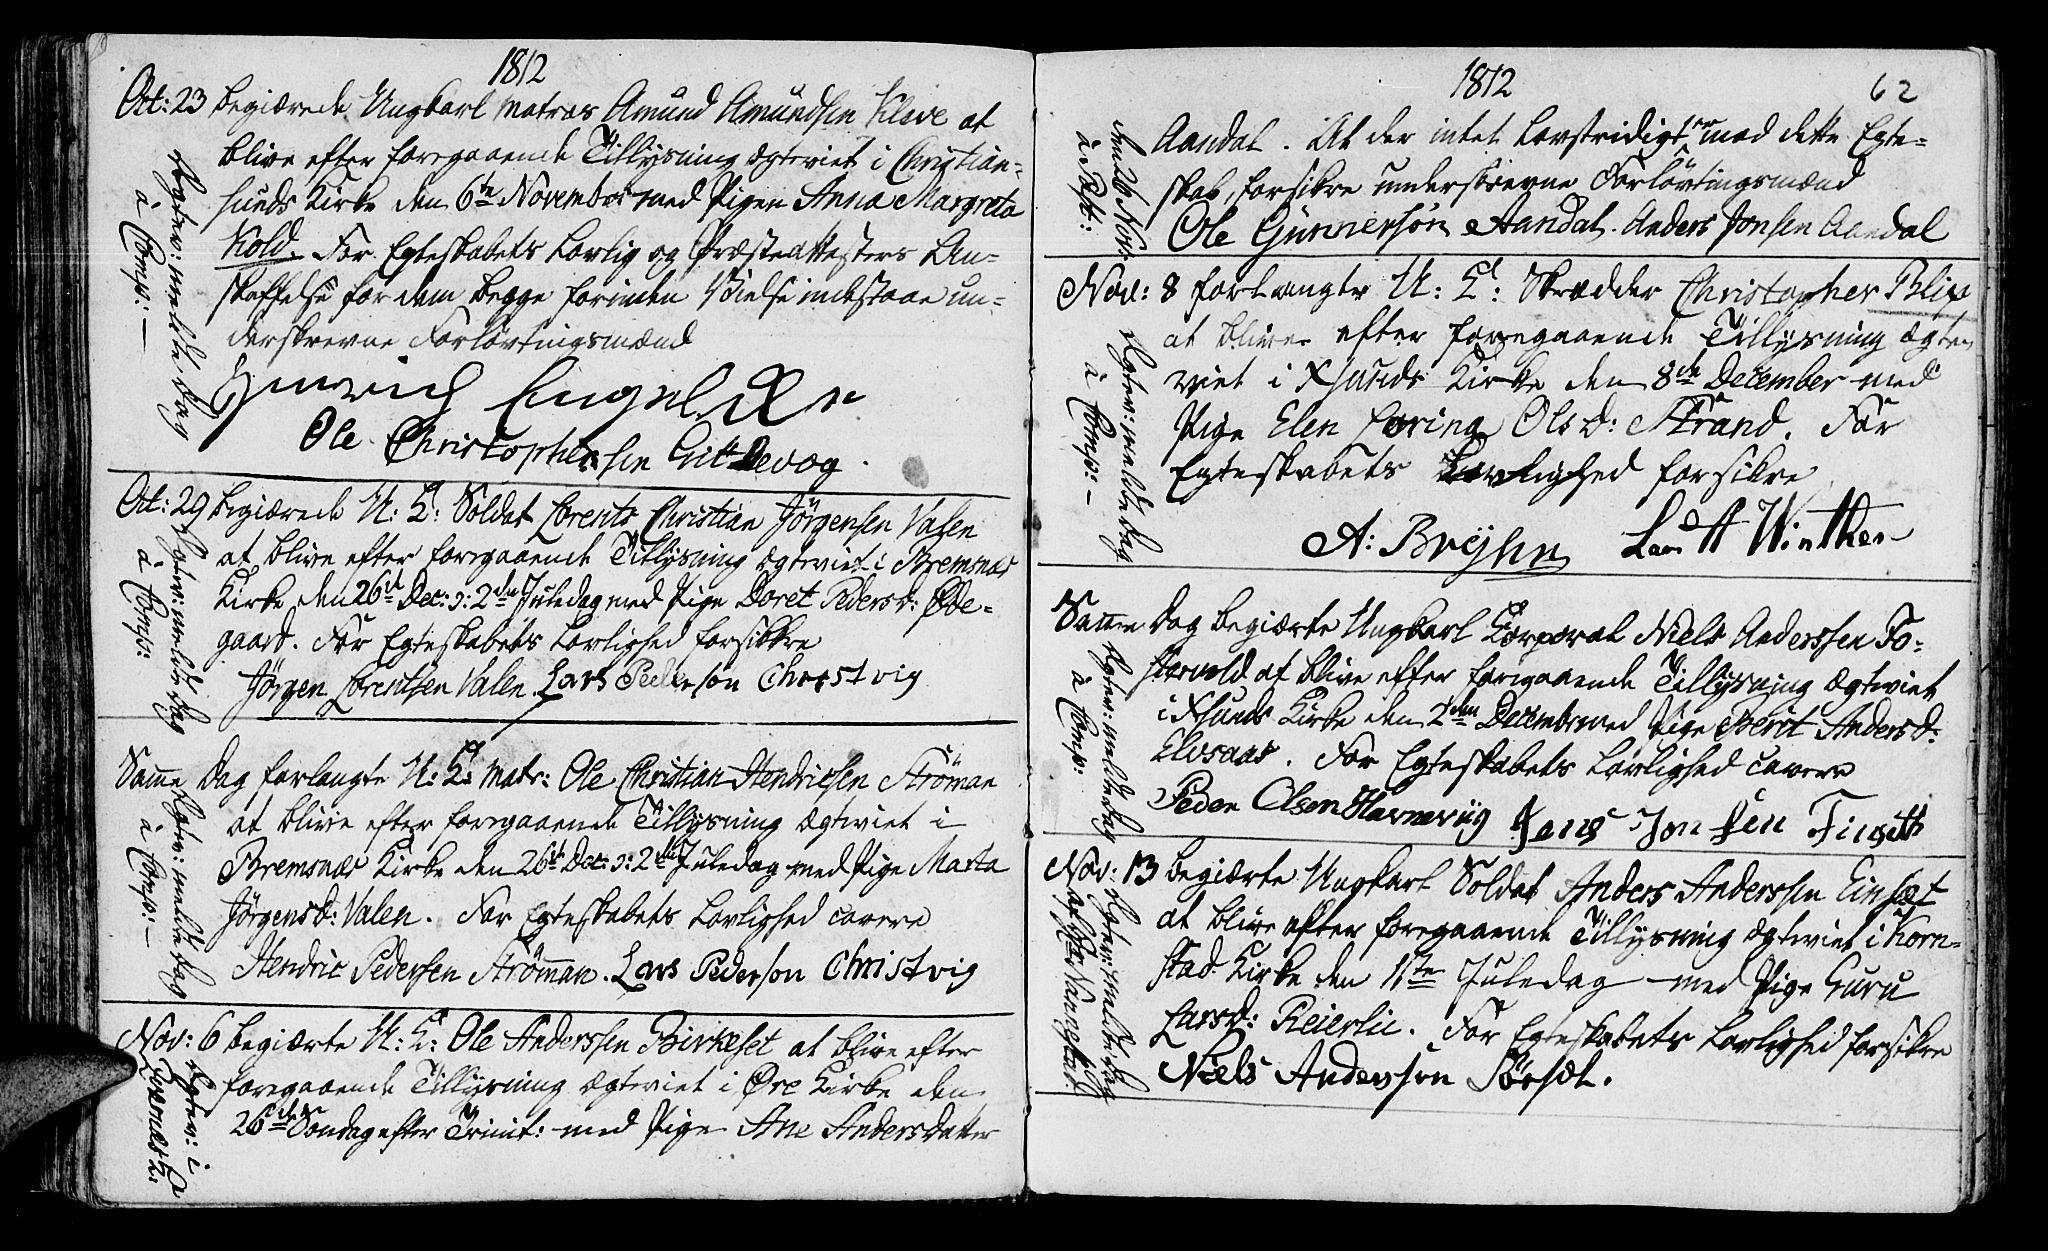 1812
Oct: 23 begiærede Ungkarl Matros Amund Amundsen Klove at
blive efter foregaaende Tillysning ægteviet i Christian-
sunds Kirke den 6te November med Pigen Anna Margreta
Kold. For Egteskabets Lovlig og Præsteattesters An-
skaffelse for dem begge forinden Vielse indestaae un-
derskrevne Forlovtingsmænd
Hinrich Engel
Ole Christophersen
Egtev: melte Dag
à Comp: —
Oct: 29 begiærede U: K: Soldat Lorents Christian Jörgensen Valen
at blive efter foregaaende Tillysning ægteviet i Bremsnæs
Kirke den 26de Dec: ɔ: 2den Juledag med Pige Doret Pedersd: Öde-
gaard. For Egteskabets Lovlighed forsikkre
Jörgen Lorentsen Valen. Lars Pederson Christvig
Egtev: melte Dag
à Comp:
Samme Dag forlangte U: K: Matr: Ole Christian Hendricsen Ströman
at blive efter foregaaende Tillysning ægteviet i
Bremsnæs Kirke den 26de Dec: ɔ: 2den Juledag med Pige Marta
Jörgensd: Valen. For Egteskabets Lovlighed cavere
Hendric Pedersen Ströman. Lars Pederson Christvig
Egtev: meldte Dag
à Comp: —
Nov: 6 begiærte U: K: Ole Anderssen Birkeset at blive efter
foregaaende Tillysning ægteviet i Öre Kirke den
26de Söndag efter Trinit: med Pige Ane Andersdatter
Egtev: i
1812
62
Aandal. At der intet Lovstridigt er mod dette Egte-
skab, forsikre underskrevne Forlovtingsmænd
Ole Gunnersön Aandal. Anders Jonsen Aandal
Nov: 8 forlangte U: K: Skrædder Christopher Blix
at blive efter foregaaende Tillysning ægte-
viet i Xsunds Kirke den 8de December med
Pige Elen Olsd: Strand. For
Egteskabets Lovlighed forsikre
A: Breyhn Winther
Egtev: meldte Dag
à Comp: —
Samme Dag begiærte Ungkarl Corporal Niels Anderssen To-
at blive efter foregaaende Tillysning ægteviet
i Xsunds Kirke den 2den December med Pige Berit Andersd:
Elvsaas. For Egteskabets Lovlighed cavere
Peder Olsen Jens Jonsen
Egtev: meldte Dag
à Comp:
Nov: 13 begiærte Ungkarl Soldat Anders Anderssen Einset
at blive efter foregaaende Tillysning ægteviet i Korn-
stad Kirke den 1ste Juledag med Pige Guru
Larsd: Reierlie. For Egteskabets Lovlighed forsikre
Niels Andersson
Egtev: meldte Dag